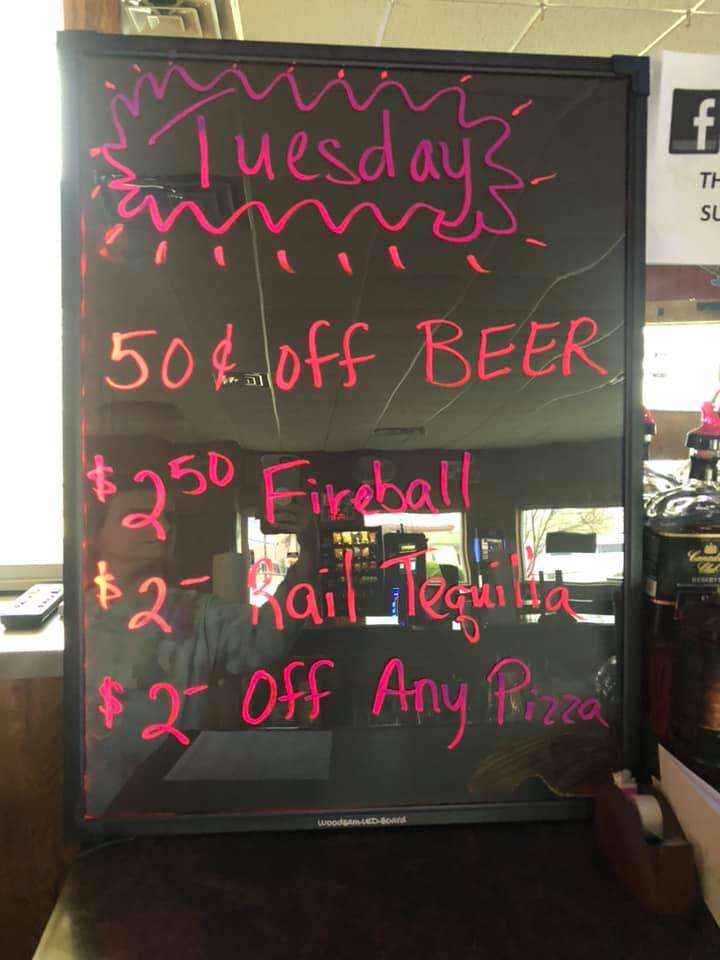 Tuesday
50¢ off BEER
$2⁵⁰ Fireball
$2- Rail Tequilla
$2- Off Any Pizza
WOODSAM LED-Board
f
TH
SU